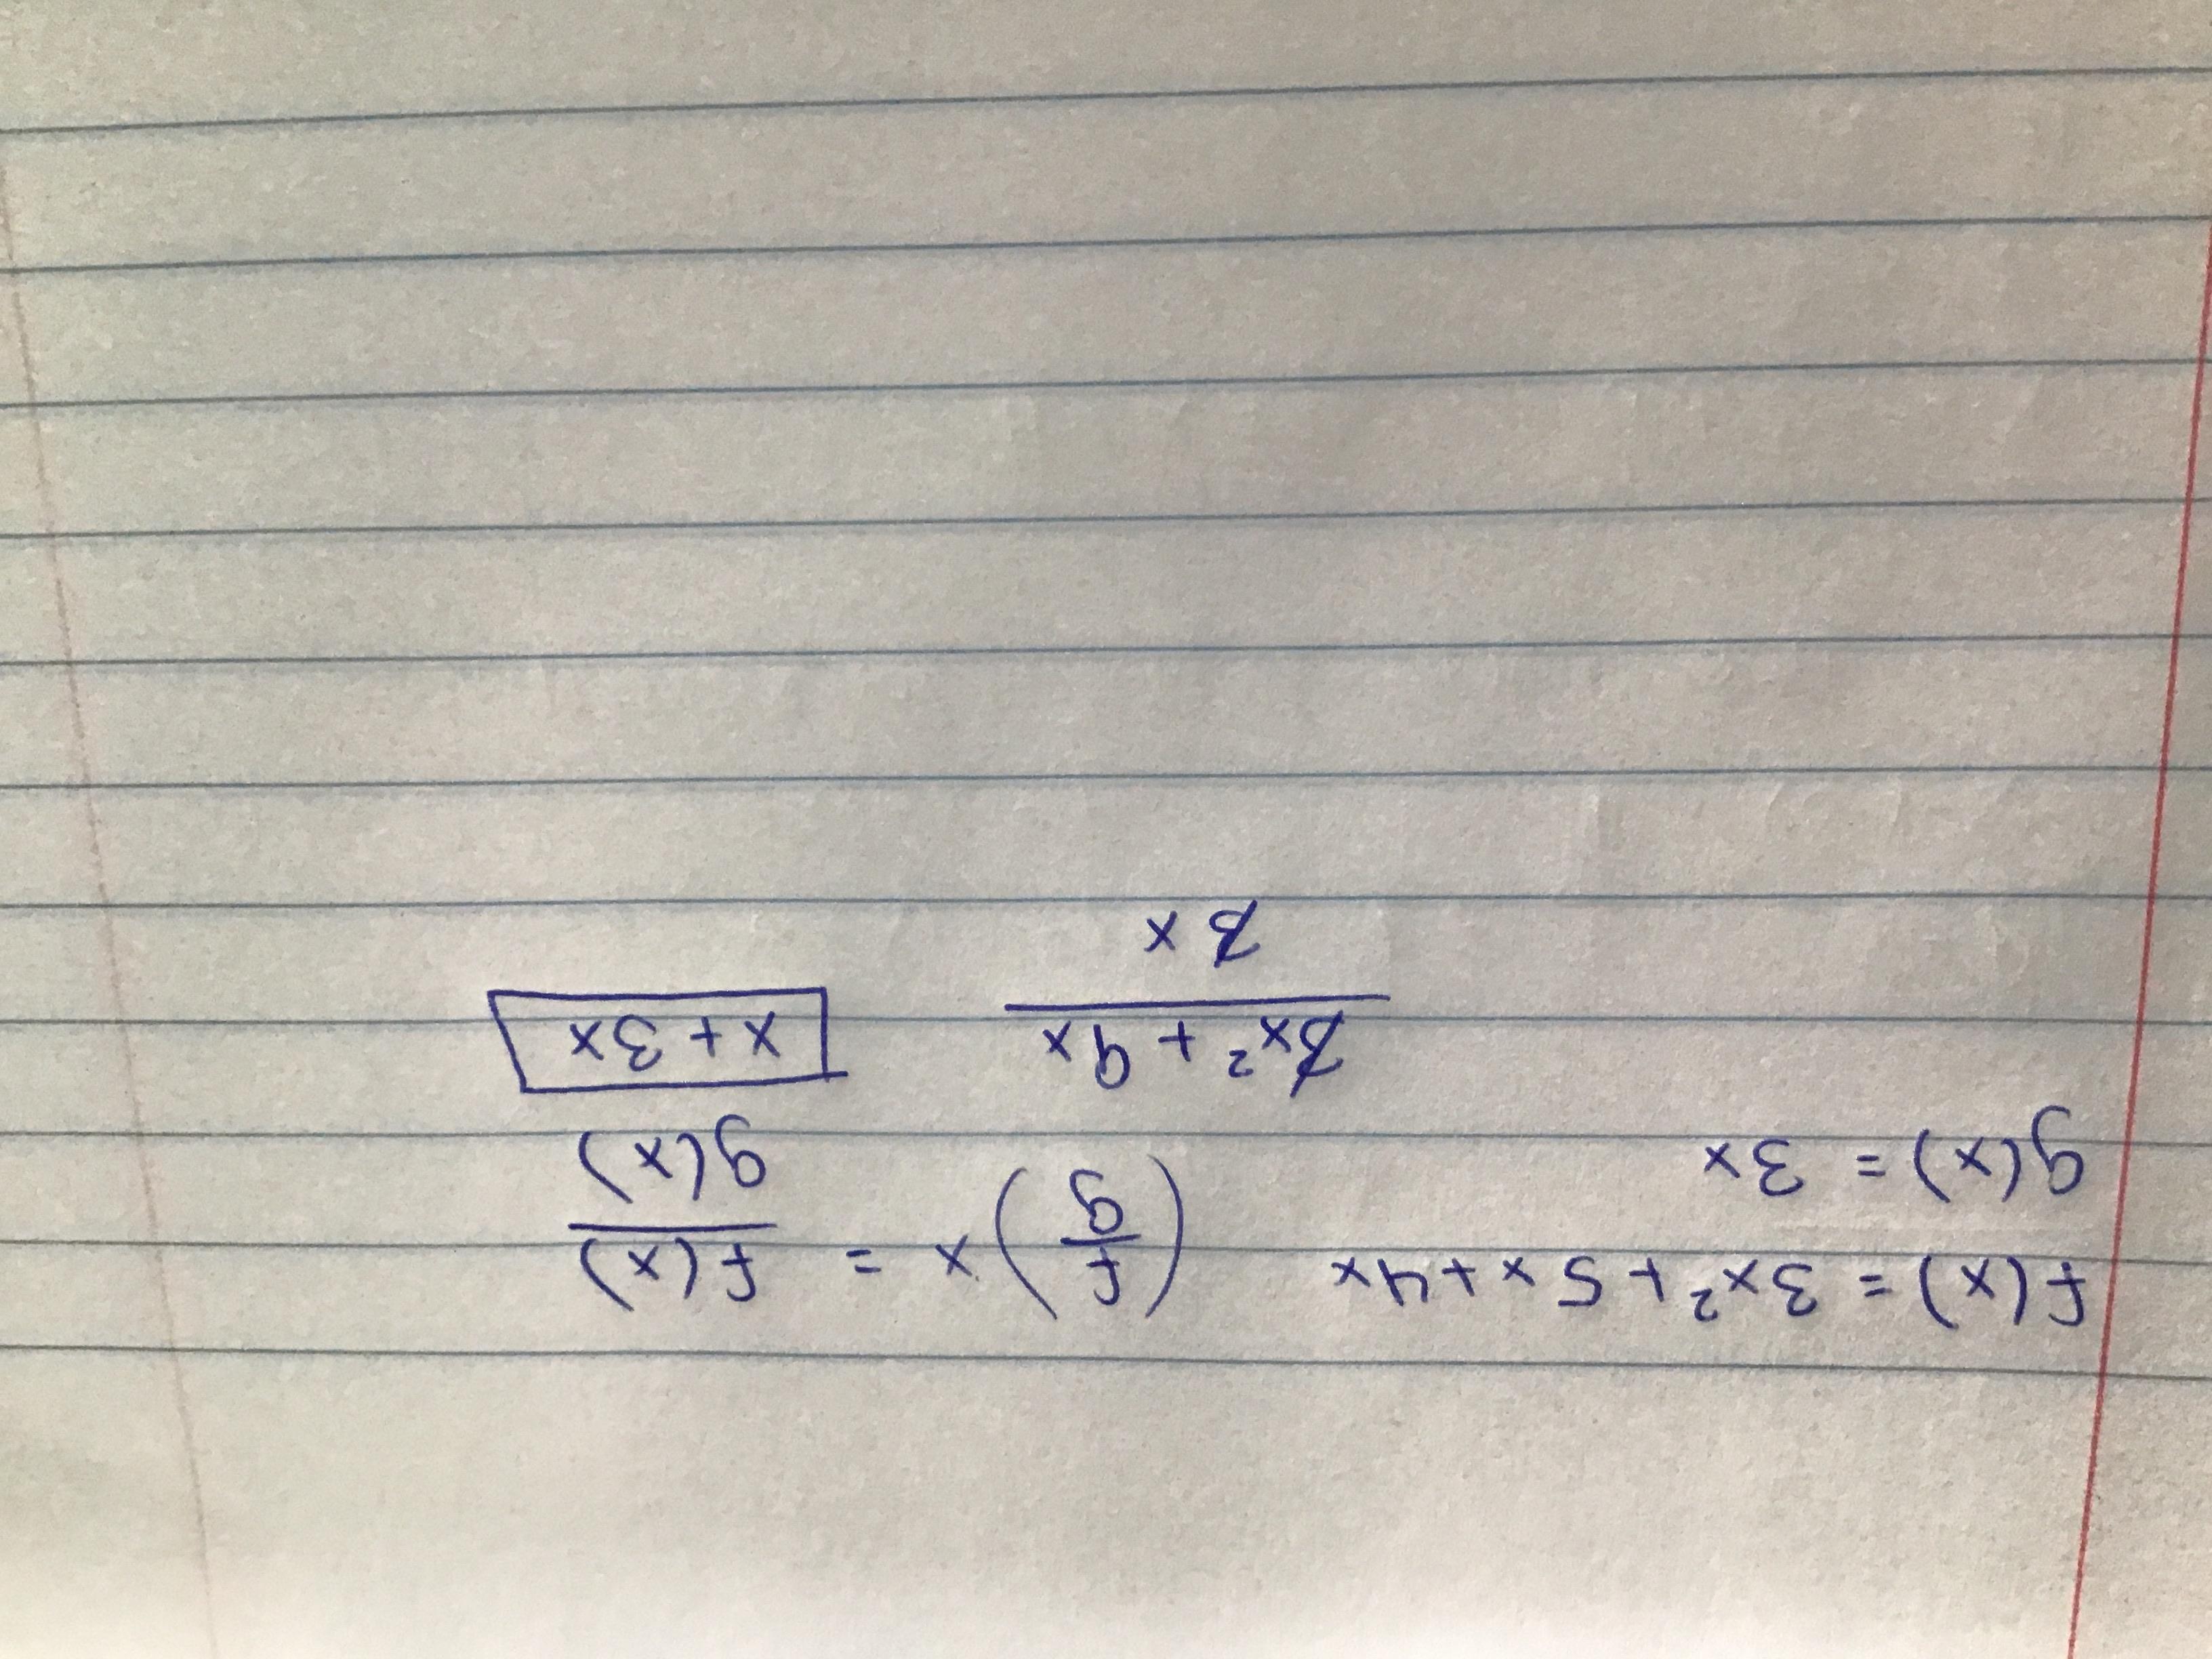 f(x) = 3x² + 5x + 4x (f/g)x = f(x)/g(x)
g(x) = 3x
3x² + 9x / 3x x + 3x